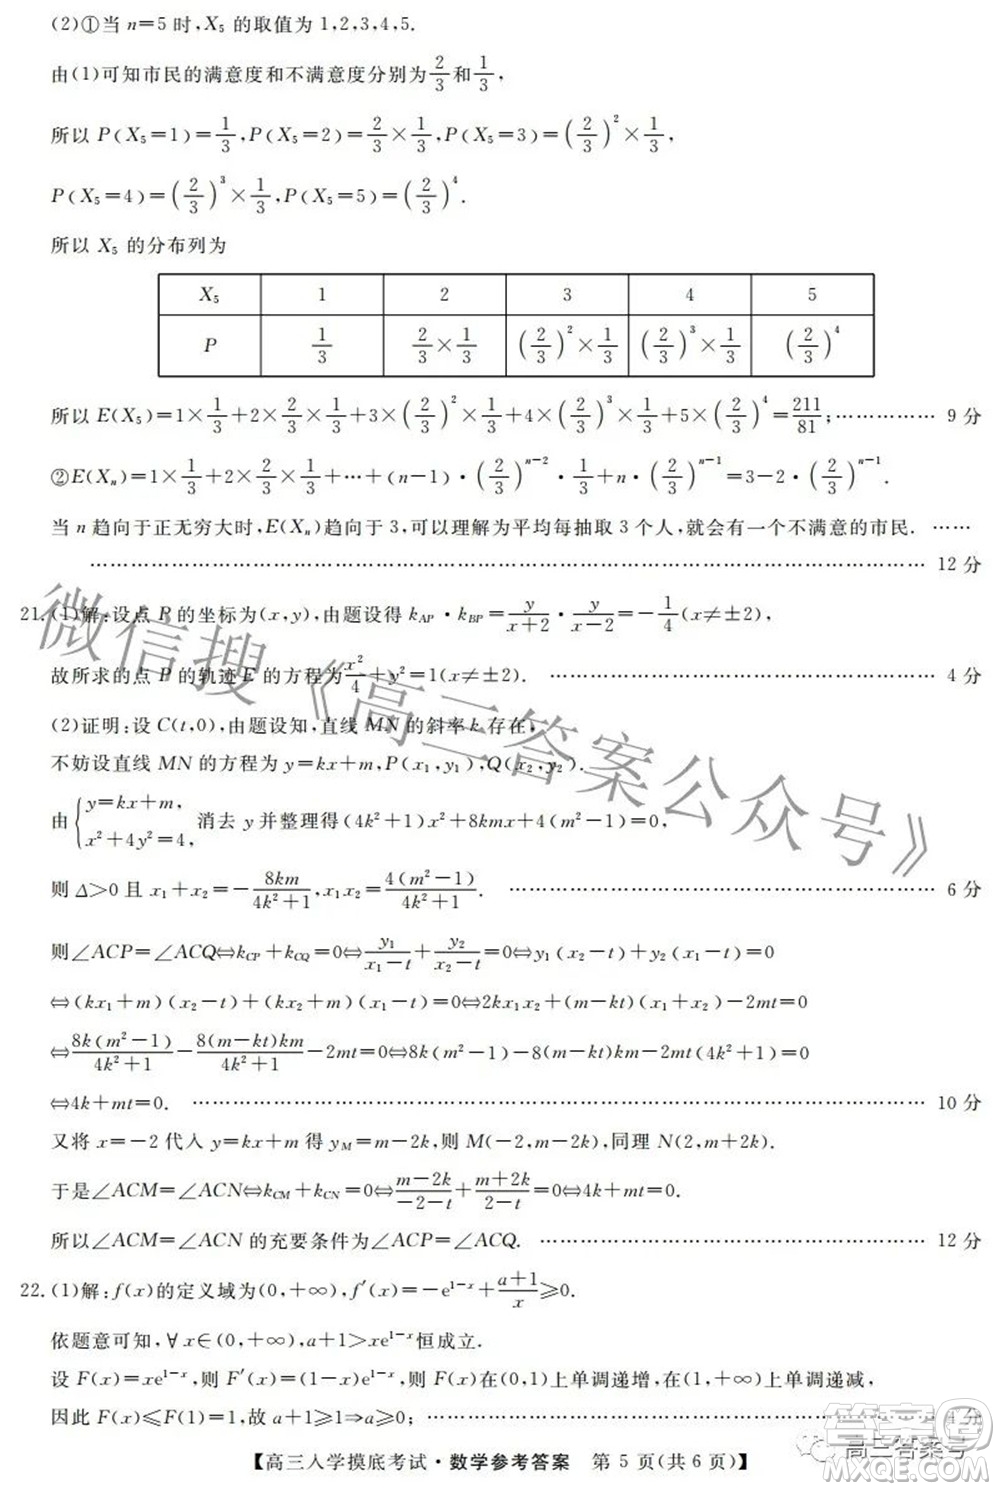 (2)①当 n=5 时,X₅ 的取值为 1,2,3,4,5.
由(1)可知市民的满意度和不满意度分别为 2/3 和 1/3,
所以 P(X₅=1)=1/3,P(X₅=2)=2/3×1/3,P(X₅=3)=(2/3)²×1/3,
P(X₅=4)=(2/3)³×1/3,P(X₅=5)=(2/3)⁴.
所以 X₅ 的分布列为
X₅ 1 2 3 4 5
P 1/3 2/3×1/3 (2/3)²×1/3 (2/3)³×1/3 (2/3)⁴
所以 E(X₅)=1×1/3+2×2/3×1/3+3×(2/3)²×1/3+4×(2/3)³×1/3+5×(2/3)⁴=211/81;…………… 9 分
②E(Xₙ)=1×1/3+2×2/3×1/3+…+(n−1)·(2/3)ⁿ⁻²·1/3+n·(2/3)ⁿ⁻¹=3−2·(2/3)ⁿ⁻¹.
当 n 趋向于正无穷大时,E(Xₙ)趋向于 3,可以理解为平均每抽取 3 个人,就会有一个不满意的市民. ……
………………………………………………………… 12 分
21.(1)解:设点 P 的坐标为(x,y),由题设得 k_AP·k_BP=y/(x+2)·y/(x−2)=−1/4(x≠±2),
故所求的点 P 的轨迹 E 的方程为 x²/4+y²=1(x≠±2). ………………………… 4 分
(2)证明:设 C(t,0),由题设知,直线 MN 的斜率 k 存在,
不妨设直线 MN 的方程为 y=kx+m,P(x₁,y₁),Q(x₂,y₂).
由{y=kx+m, x²+4y²=4, 消去 y 并整理得(4k²+1)x²+8kmx+4(m²−1)=0,
则 Δ>0 且 x₁+x₂=−8km/(4k²+1),x₁x₂=4(m²−1)/(4k²+1). ………………………… 6 分
则∠ACP=∠ACQ⇔k_CP+k_CQ=0⇔y₁/(x₁−t)+y₂/(x₂−t)=0⇔y₁(x₂−t)+y₂(x₁−t)=0
⇔(kx₁+m)(x₂−t)+(kx₂+m)(x₁−t)=0⇔2kx₁x₂+(m−kt)(x₁+x₂)−2mt=0
⇔8k(m²−1)/(4k²+1)−8(m−kt)km/(4k²+1)−2mt=0⇔8k(m²−1)−8(m−kt)km−2mt(4k²+1)=0
⇔4k+mt=0. ………………………………………… 10 分
又将 x=−2 代入 y=kx+m 得 y_M=m−2k,则 M(−2,m−2k),同理 N(2,m+2k).
于是∠ACM=∠ACN⇔k_CM+k_CN=0⇔(m−2k)/(−2−t)+(m+2k)/(2−t)=0⇔4k+mt=0.
所以∠ACM=∠ACN 的充要条件为∠ACP=∠ACQ. ………………………… 12 分
22.(1)解:f(x)的定义域为(0,+∞),f′(x)=−e¹⁻ˣ+(a+1)/x≥0.
依题意可知,∀x∈(0,+∞),a+1>xe¹⁻ˣ恒成立.
设 F(x)=xe¹⁻ˣ,则 F′(x)=(1−x)e¹⁻ˣ,则 F(x)在(0,1)上单调递增,在(1,+∞)上单调递减,
因此 F(x)≤F(1)=1,故 a+1≥1⇒a≥0; ………………………… 4 分
【高三入学摸底考试·数学参考答案 第 5 页(共 6 页)】
微信搜《高三答案公众号》
高三答案号
答案圈
MXQE.COM